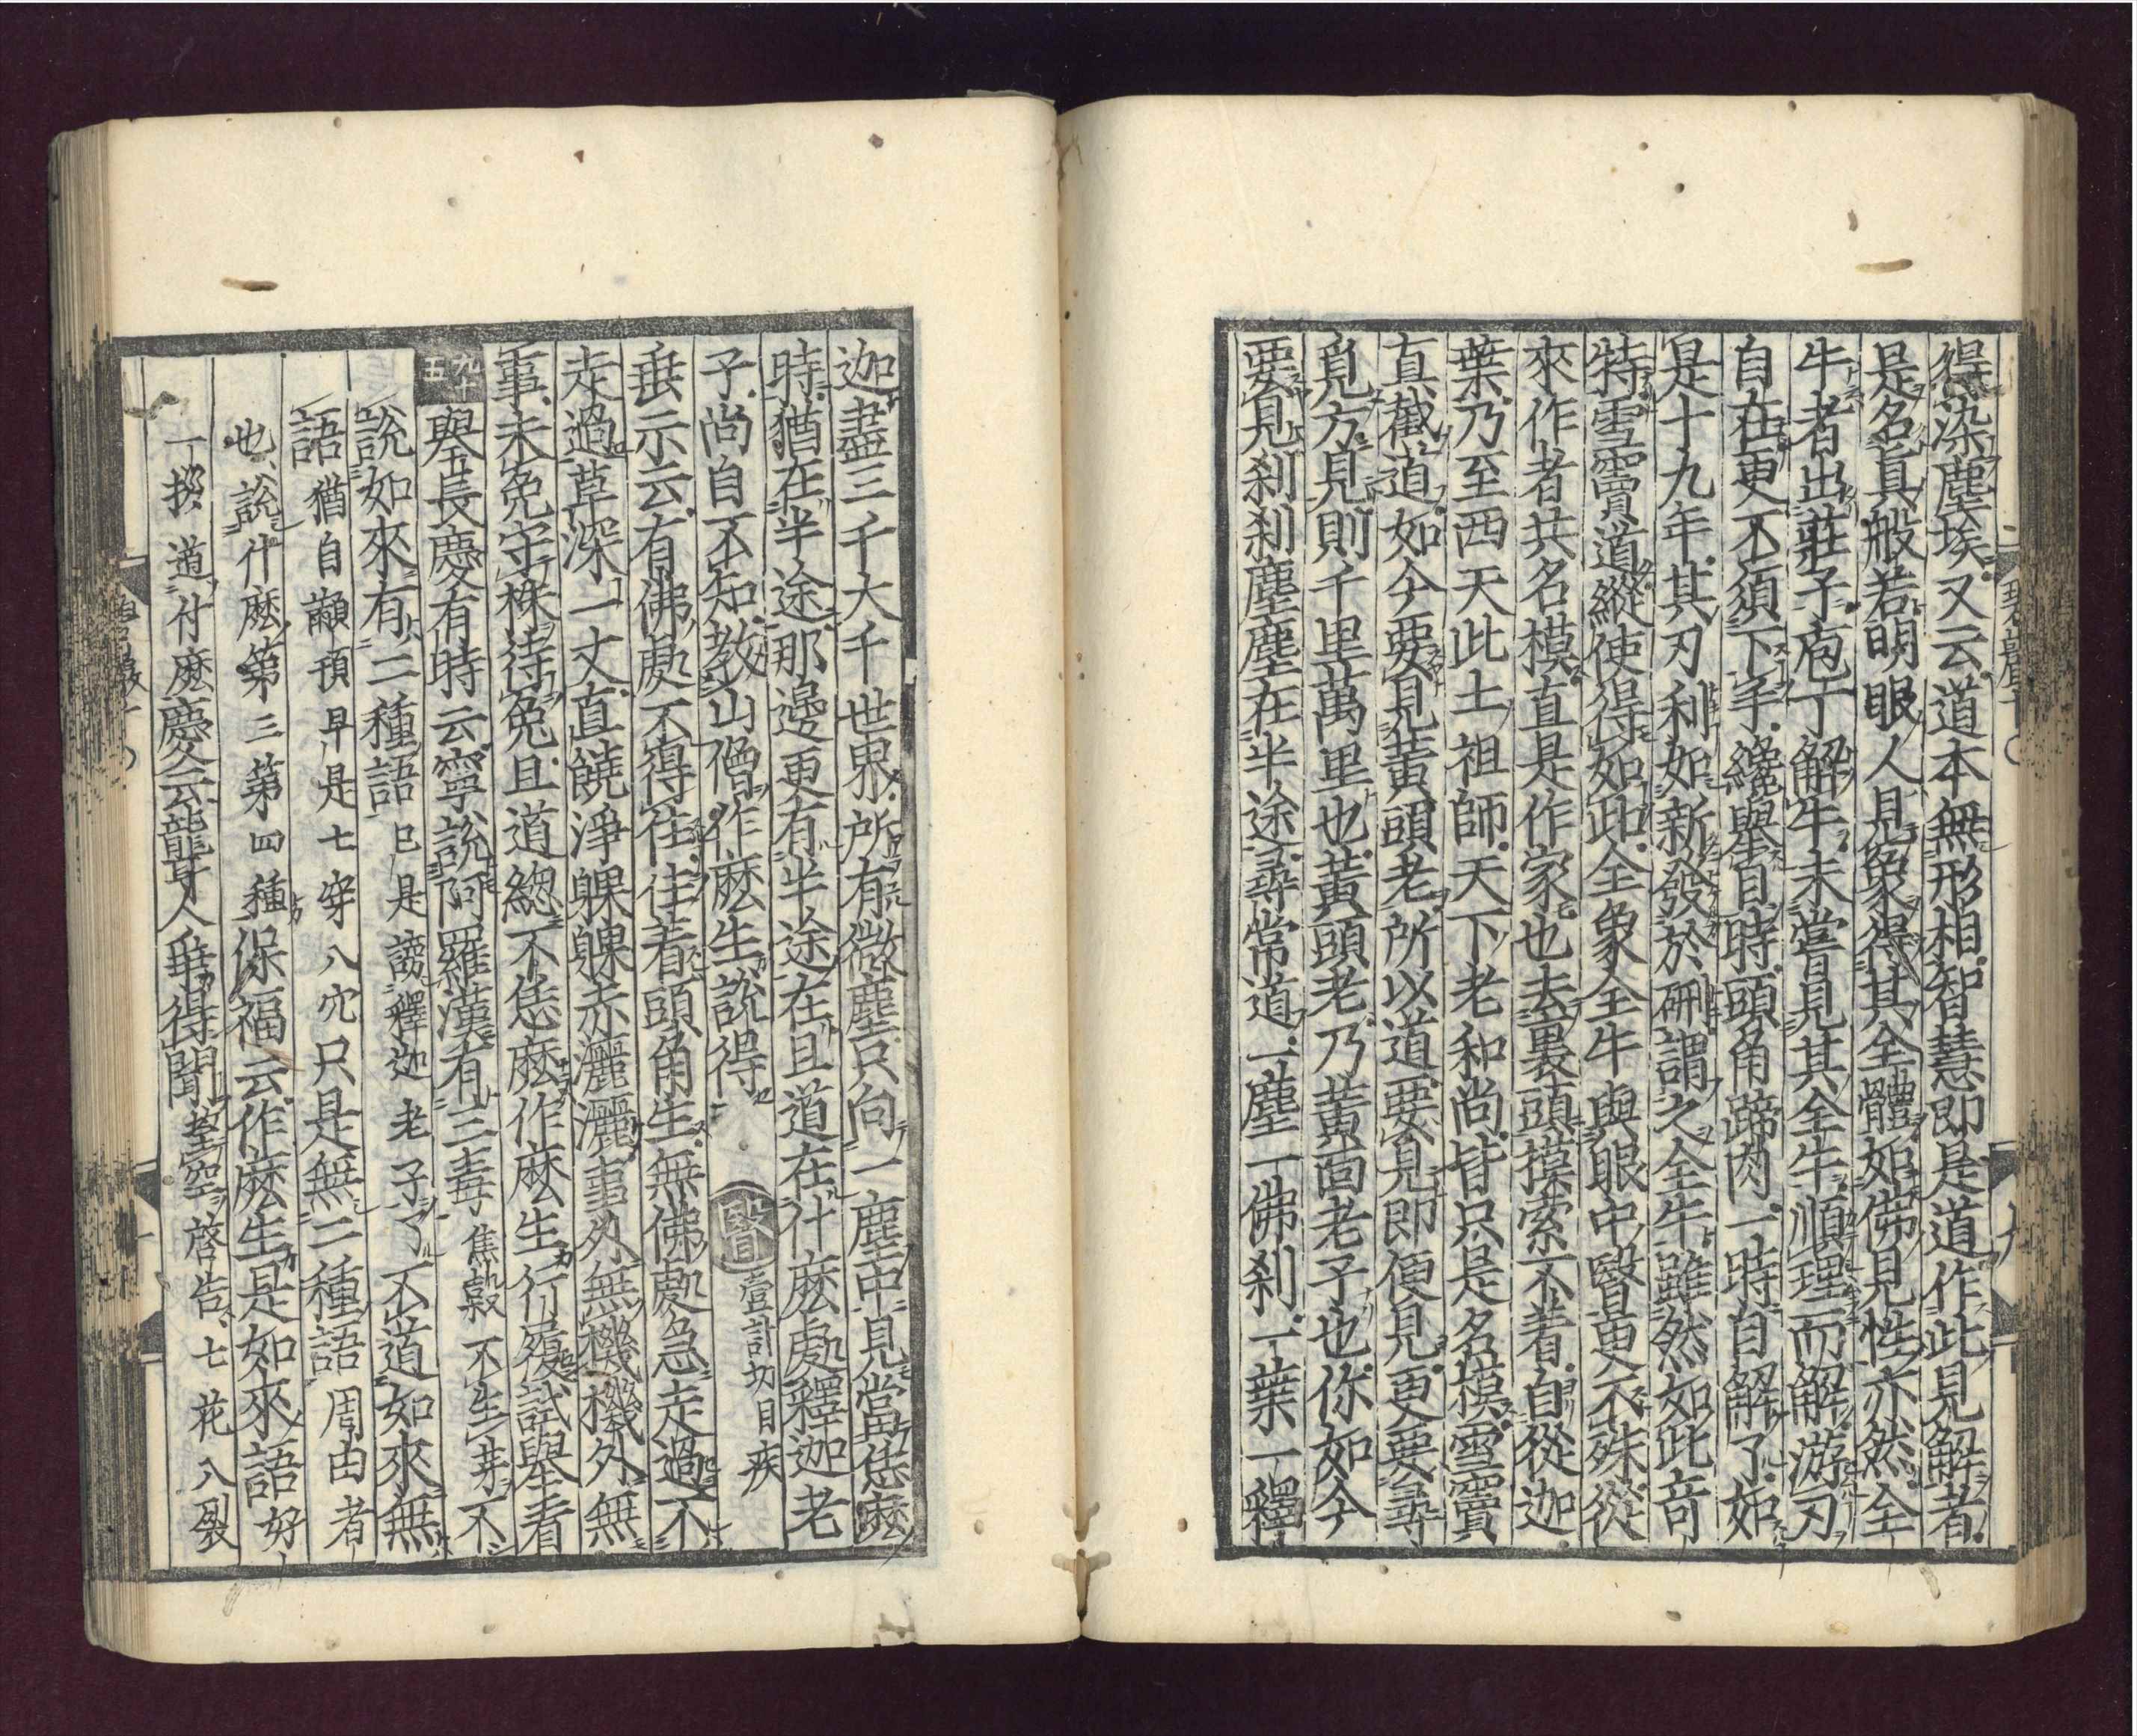 得染塵埃又云道本無形相智慧即是道作此見解者
是名真般若明眼人見象得其全體如佛見性亦然全
牛者出莊子庖丁解牛未嘗見其全牛順理而解游刃
自在更不須下手纔舉目時頭角蹄肉一時自解了如
是十九年其刃利如新發於硎謂之全牛雖然如此奇
特雪竇道縱使得如此全象全牛與眼中瞖更不殊從
來作者共名模直是作家也去裏頭摸索不著自從迦
葉乃至西天此土祖師天下老和尚皆只是名模雪竇
直截道如今要見黃頭老所以道要見即便見更要尋
覓方見則千里萬里也黃頭老乃黃面老子也你如今
要見刹刹塵塵在半途尋常道一塵一佛刹一葉一釋
迦盡三千大千世界所有微塵只向一塵中見當恁麼
時猶在半途那邊更有半途在且道在什麼處釋迦老
子尚自不知教山僧作麼生說得 瞖 壹計切目疾
垂示云有佛處不得住住著頭角生無佛處急走過不
走過草深一丈直饒淨躶躶赤灑灑事外無機機外無
事未免守株待兔且道總不恁麼作麼生行履試舉看
九十五 舉長慶有時云寧說阿羅漢有三毒 焦穀不生芽 不
說如來有二種語 已是謗釋迦老子了 不道如來無
語 猶自顢頇早是七穿八穴 只是無二種語 周由者
也說什麼第三第四種 保福云作麼生是如來語 好
一拶道什麼 慶云聾人爭得聞 望空啓告七花八裂